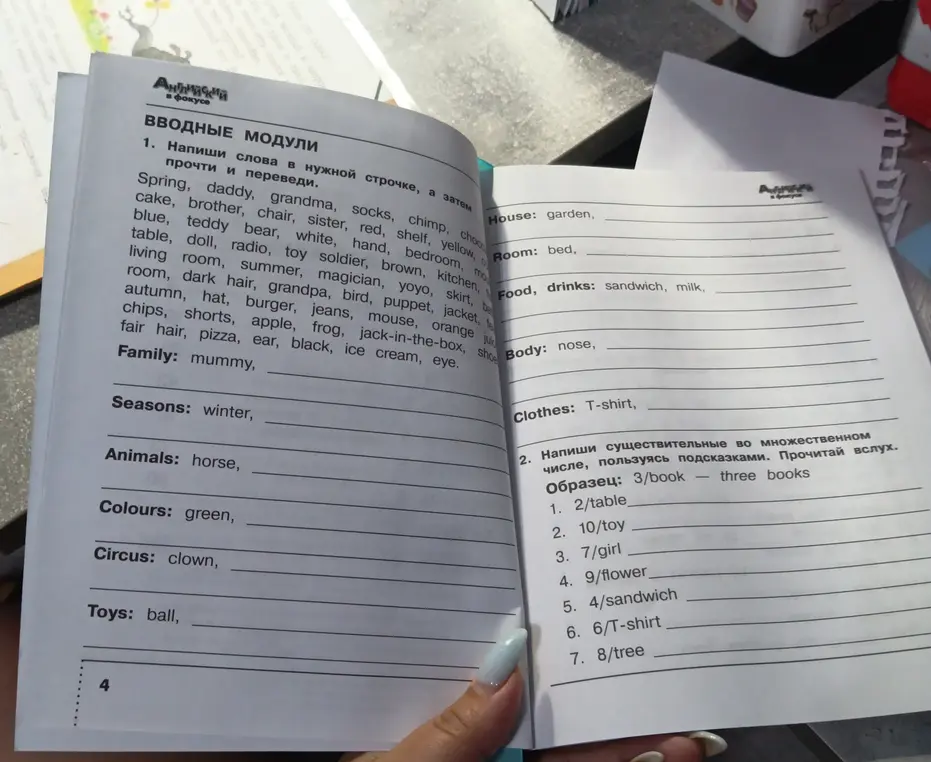 Английский
в фокусе
ВВОДНЫЕ МОДУЛИ
1. Напиши слова в нужной строчке, а затем
прочти и переведи.
Spring, daddy, grandma, socks, chimp,
cake, brother, chair, sister, red, shelf, yellow,
blue, teddy bear, white, hand, bedroom,
table, doll, radio, toy soldier, brown, kitchen,
living room, summer, magician, yoyo, skirt,
room, dark hair, grandpa, bird, puppet, jacket,
autumn, hat, burger, jeans, mouse, orange
chips, shorts, apple, frog, jack-in-the-box,
fair hair, pizza, ear, black, ice cream, eye.
Family: mummy,
Seasons: winter,
Animals: horse,
Colours: green,
Circus: clown,
Toys: ball,
4
Английский
в фокусе
House: garden,
Room: bed,
Food, drinks: sandwich, milk,
Body: nose,
Clothes: T-shirt,
2. Напиши существительные во множественном
числе, пользуясь подсказками. Прочитай вслух.
Образец: 3/book — three books
1. 2/table
2. 10/toy
3. 7/girl
4. 9/flower
5. 4/sandwich
6. 6/T-shirt
7. 8/tree